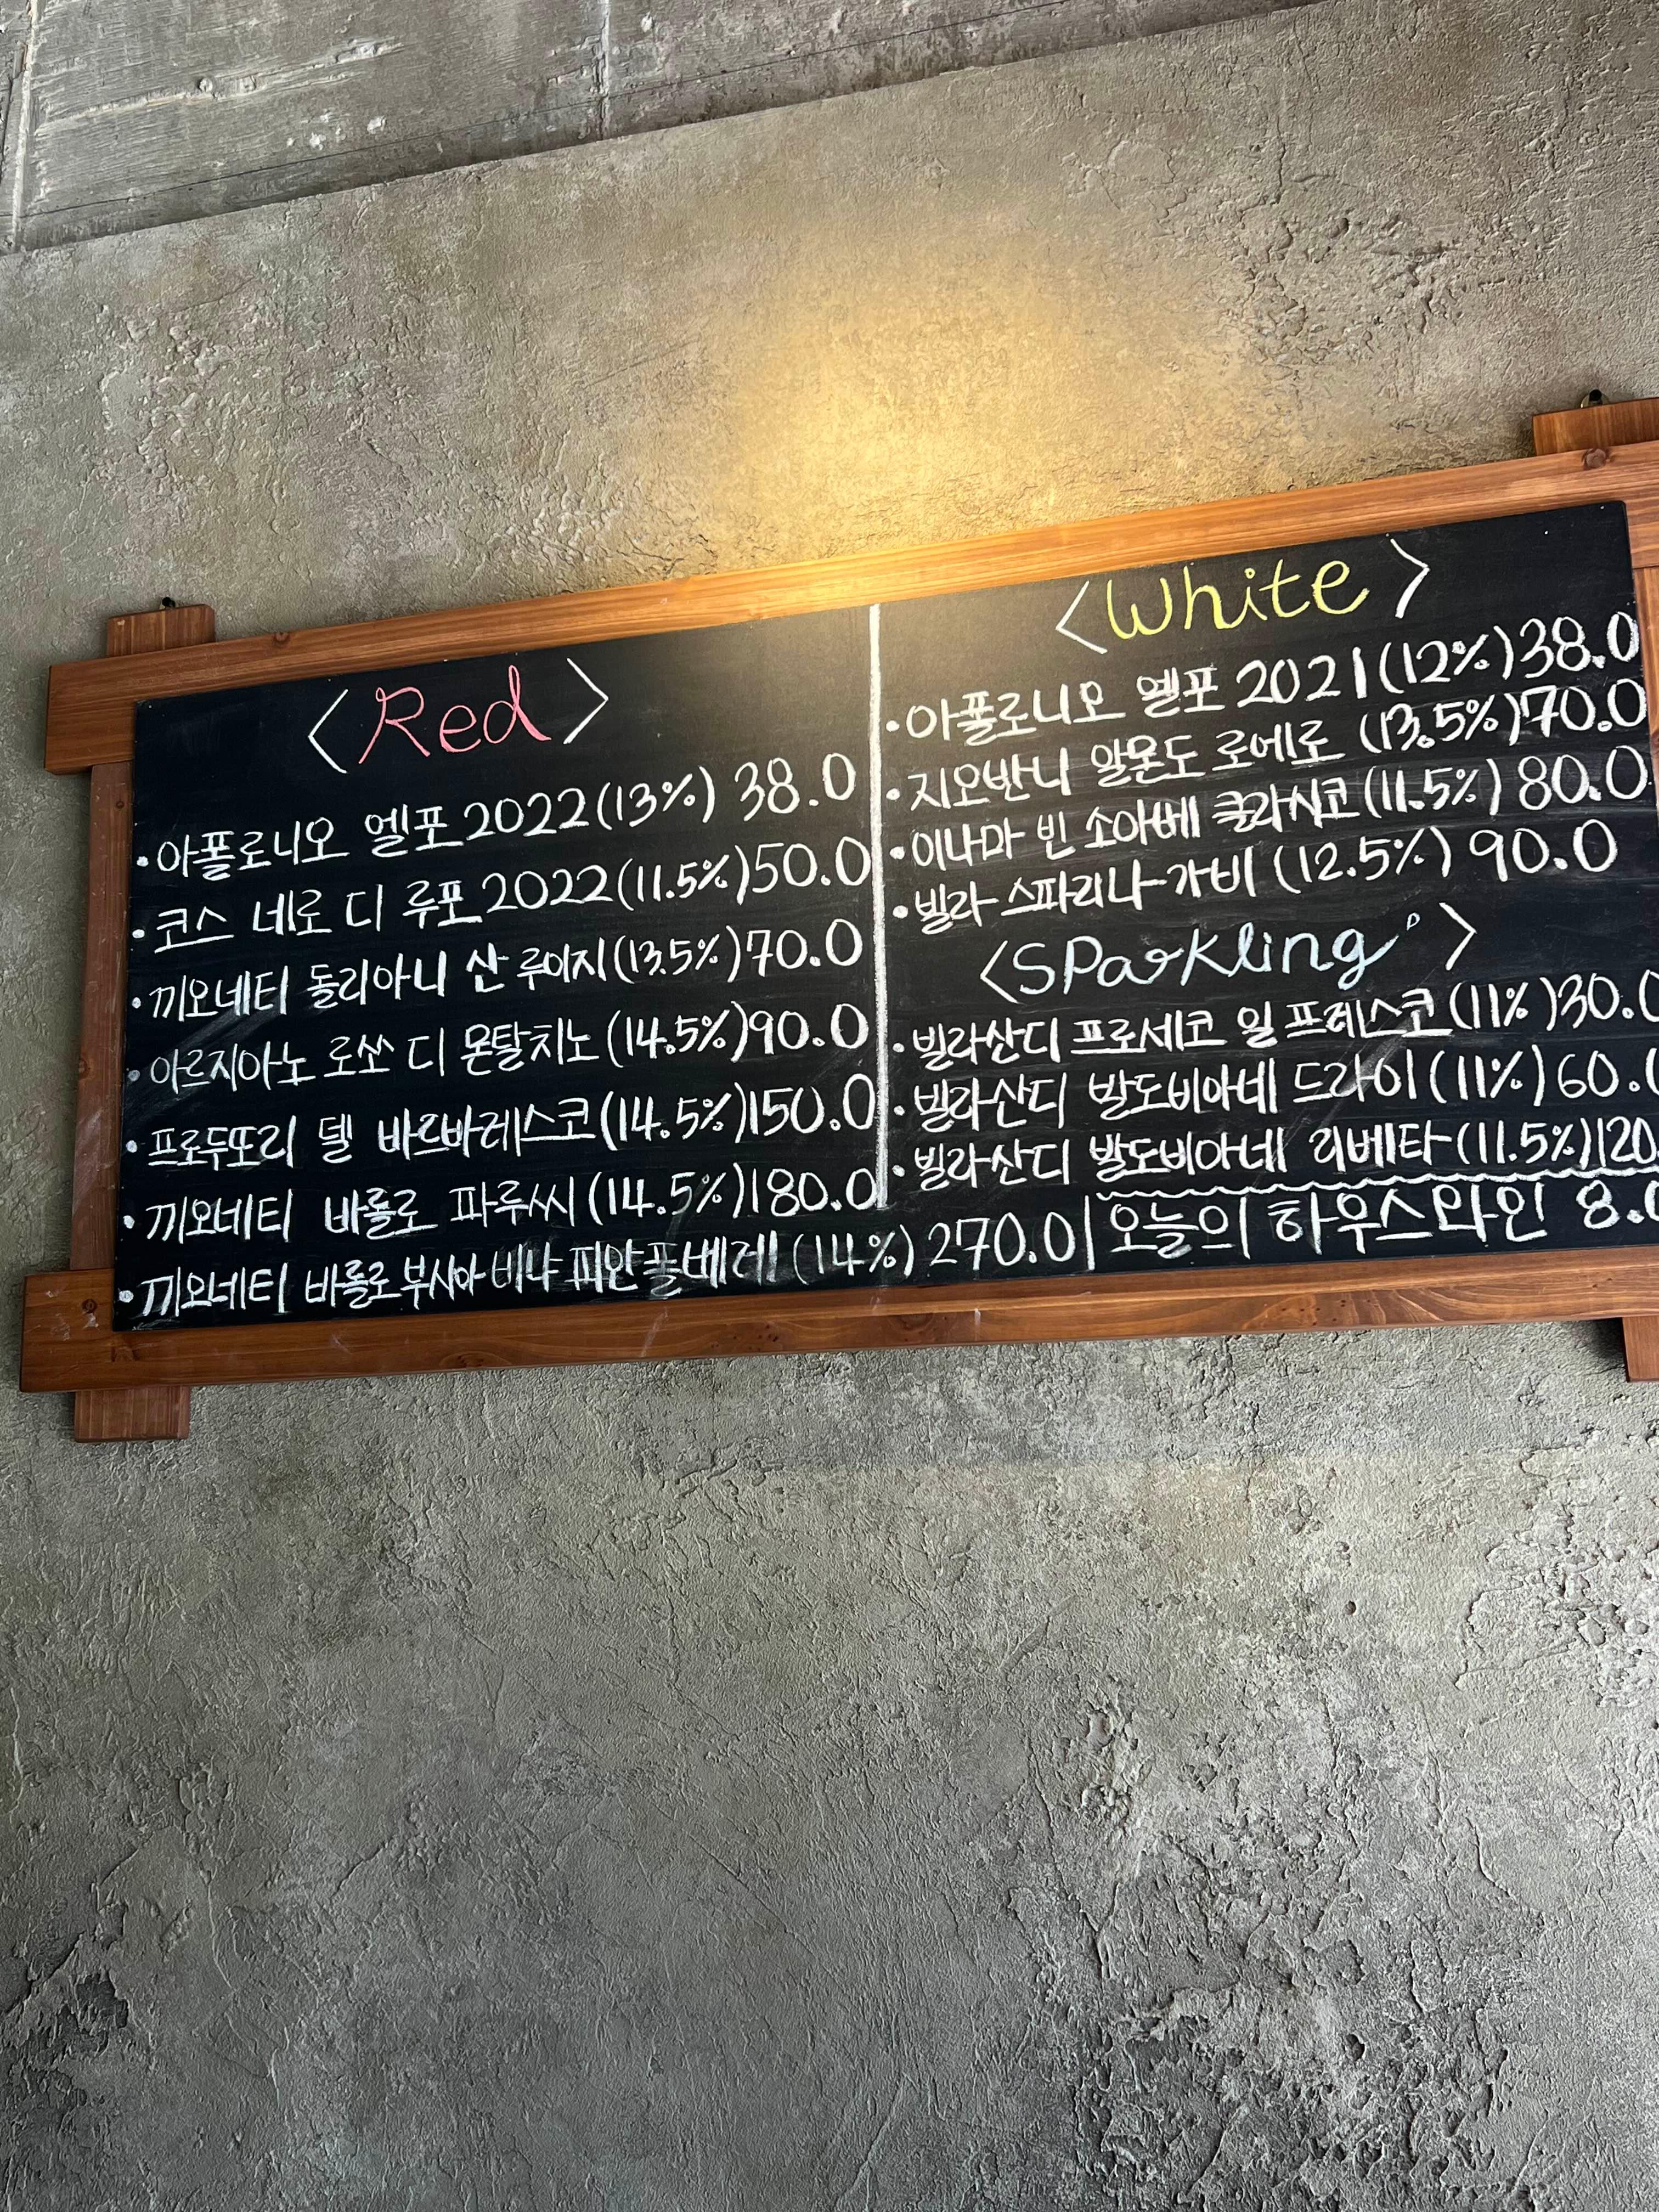 <Red>
·아폴로니오 엘포 2022(13%) 38.0
·코스 네로 디 루포 2022(11.5%)50.0
·끼오네티 돌리아니 산 루이지(13.5%)70.0
·아르지아노 로쏘 디 몬탈치노(14.5%)90.0
·프로두또리 델 바르바레스코(14.5%)150.0
·끼오네티 바롤로 파루씨(14.5%)180.0
·끼오네티 바롤로 부시아 비냐 피안폴베레 (14%) 270.0
<White>
·아폴로니오 엘포 2021(12%)38.0
·지오반니 알몬도 로에로 (13.5%)70.0
·이나마 빈 소아베 클라시코(11.5%) 80.0
·빌라 스파리나-가비 (12.5%) 90.0
<SParkling>
·빌라산디 프로세코 일 프레스코(11%)30.0
·빌라산디 발도비아네 드라이(11%)60.0
·빌라산디 발도비아네 리베타(11.5%)120.
오늘의 하우스와인 8.0